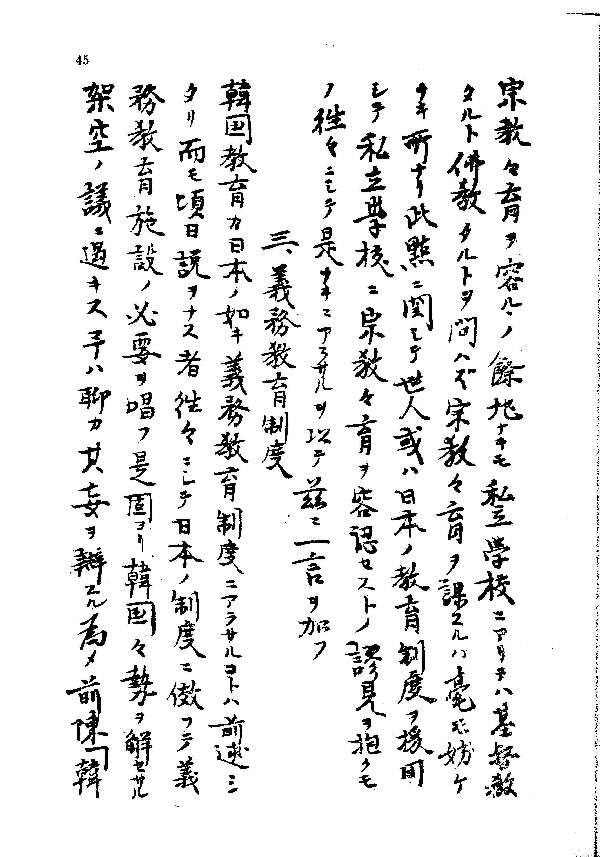 45
宗教々育ヲ容ルヽノ餘地ナキモ私立學校ニアリテハ基督敎
タルト佛教タルトヲ問ハズ宗教々育ヲ課スルハ毫モ妨ケ
ナキ所ナリ此點ニ関シテ世人或ハ日本ノ教育制度ヲ援用
シテ私立學校ニ宗教々育ヲ容認セストノ謬見ヲ抱クモ
ノ往々ニシテ是ナキニアラサルヲ以テ茲ニ一言ヲ加フ
三、義務教育制度
韓国教育カ日本ノ如キ義務教育制度ニアラサルコトハ前述シ
タリ而モ頃日説ヲナス者往々ニシテ日本ノ制度ニ倣フテ義
務教育施設ノ必要ヲ唱フ是固ヨリ韓国々勢ヲ解セサル
架空ノ議ニ過キス予ハ聊カ其妄ヲ辯スル為メ前陳「韓